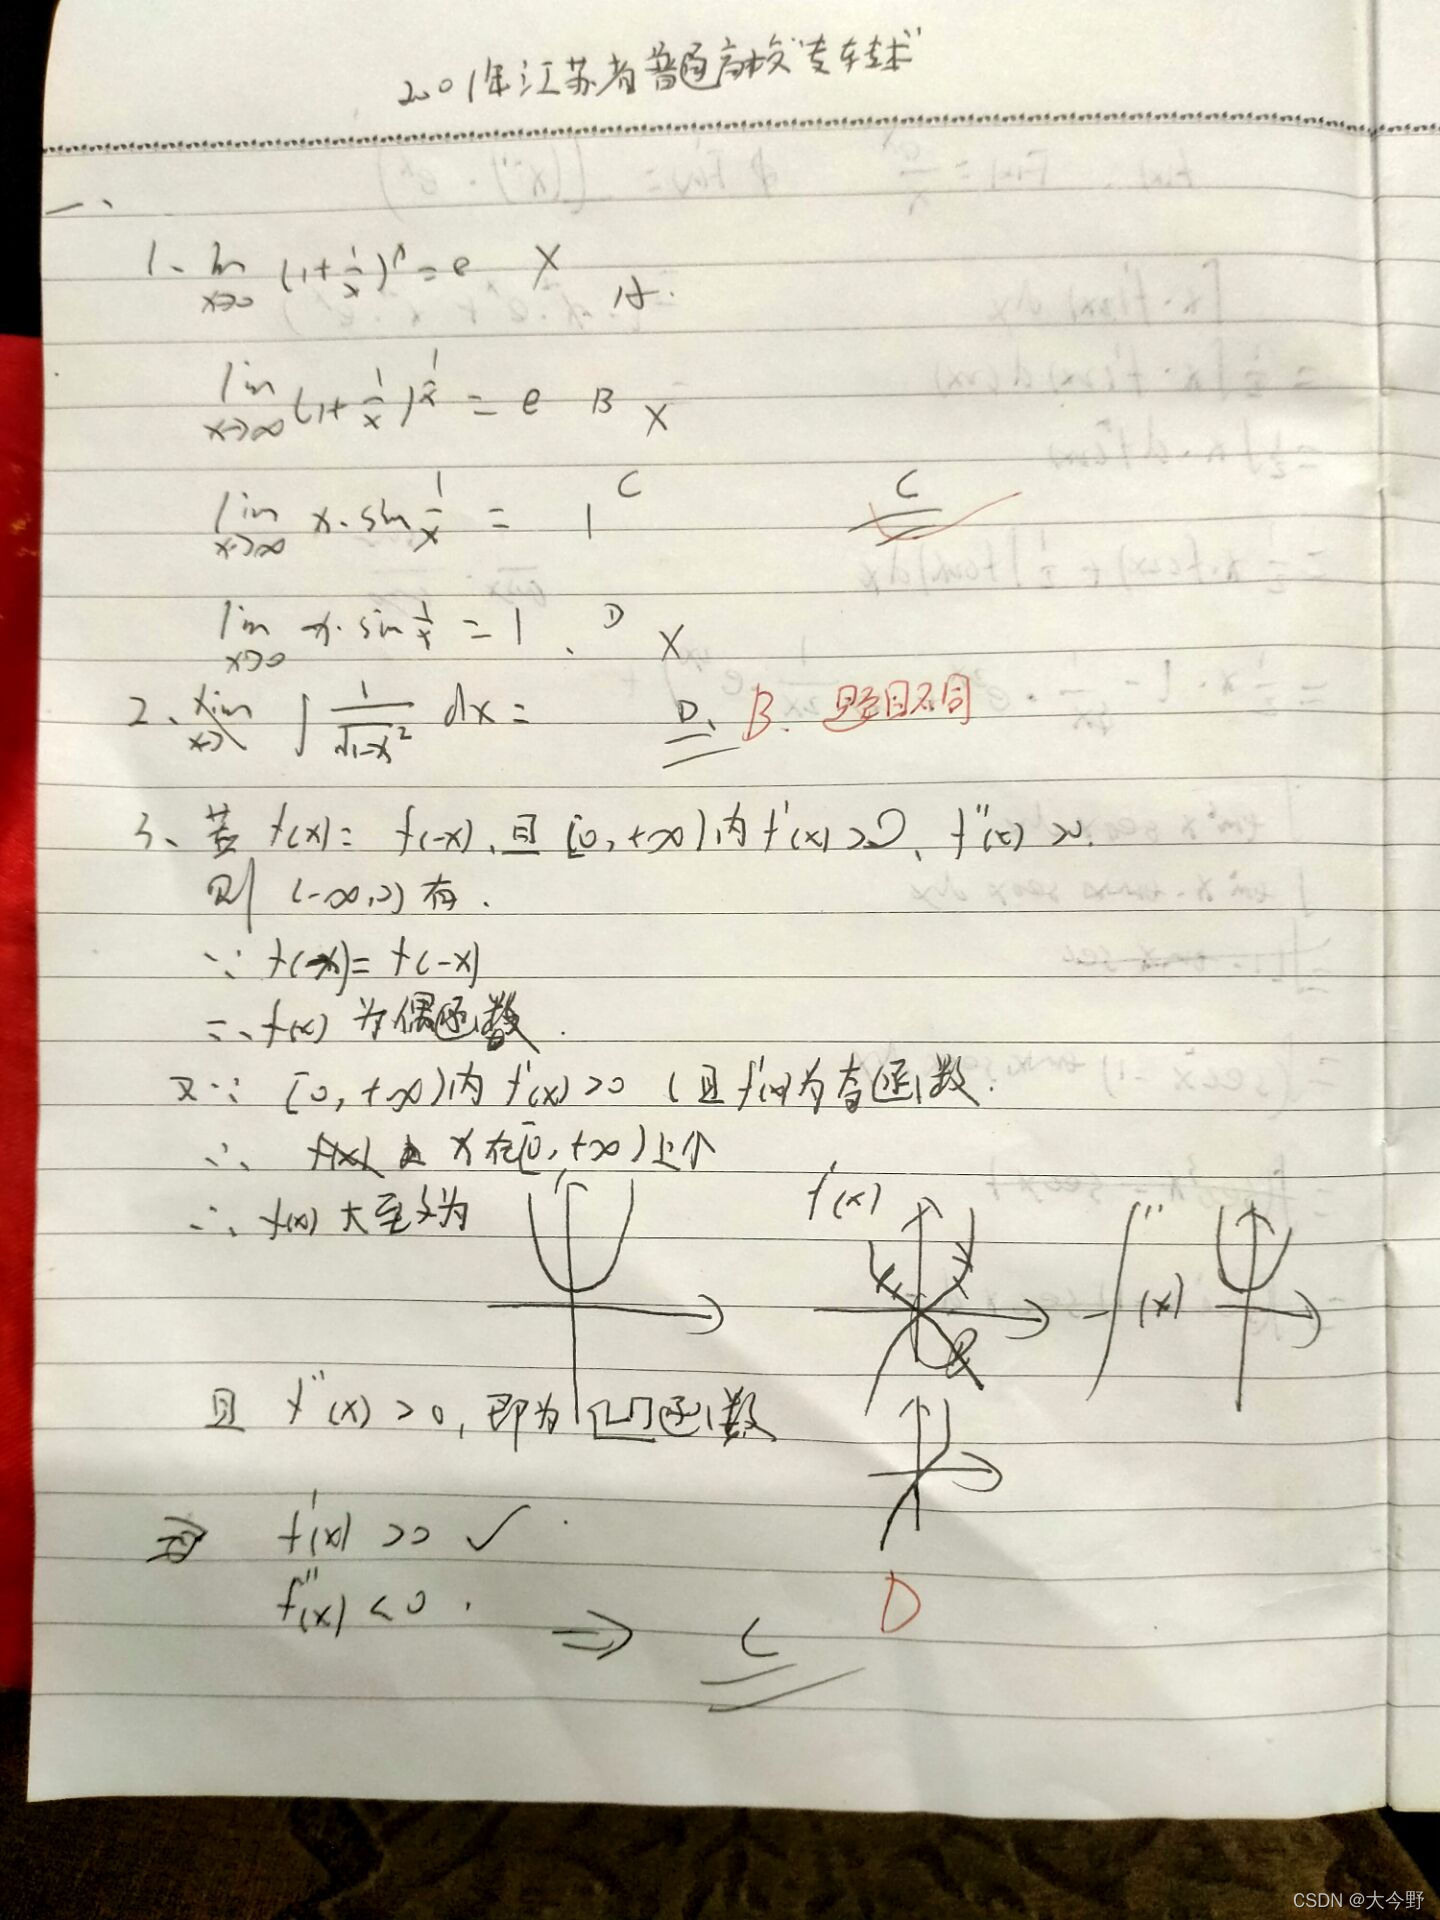 2001年江苏省普通高校"专转本"
一、
1、lim x→0 (1+1/x)^x = e X A.
lim x→∞ (1+1/x)^(1/x) = e B X
lim x→∞ x·sin 1/x = 1 C C
lim x→0 x·sin 1/x = 1 . D X
2、∫ 1/√(1-x²) dx = D、 B. 题目不同
3、若 f(x) = f(-x)、且 [0, +∞) 内 f'(x) >0、f''(x) >0.
则 (-∞,0) 有.
∵ f(-x) = f(-x)
∴ f(x) 为偶函数.
又∵ [0, +∞) 内 f'(x) >0 (且 f'(x) 为奇函数.
∴ x在[0, +∞) 上个
∴ f(x) 大至为 f'(x) f''(x)
且 f''(x) >0, 即为凹函数
⇒ f'(x) >0 ✓.
f''(x) <0 .
⇒ C D
CSDN @大今野